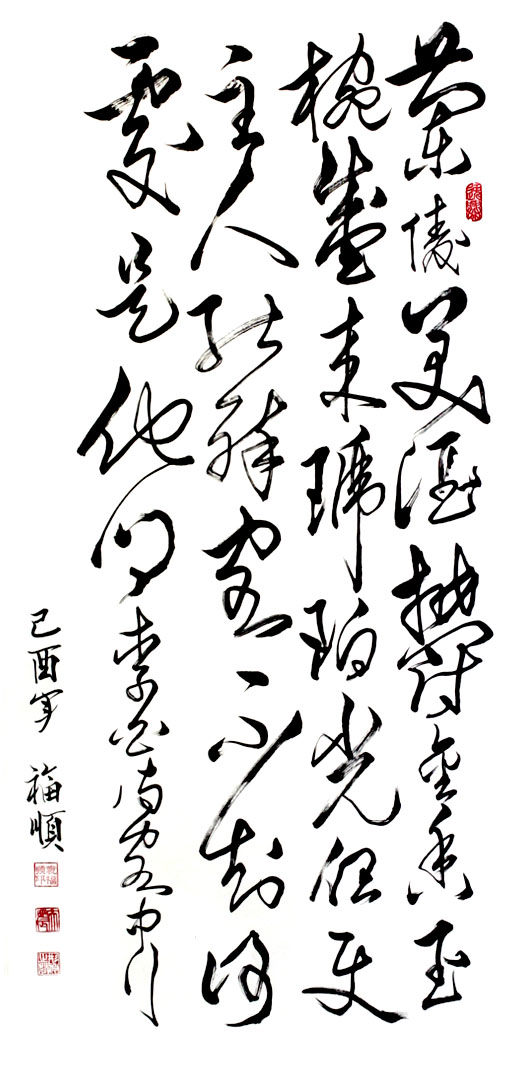 蘭陵美酒鬱金香玉
椀盛来琥珀光但使
主人能醉客不知何
處是他鄉 李白詩客中行
己酉年 福順